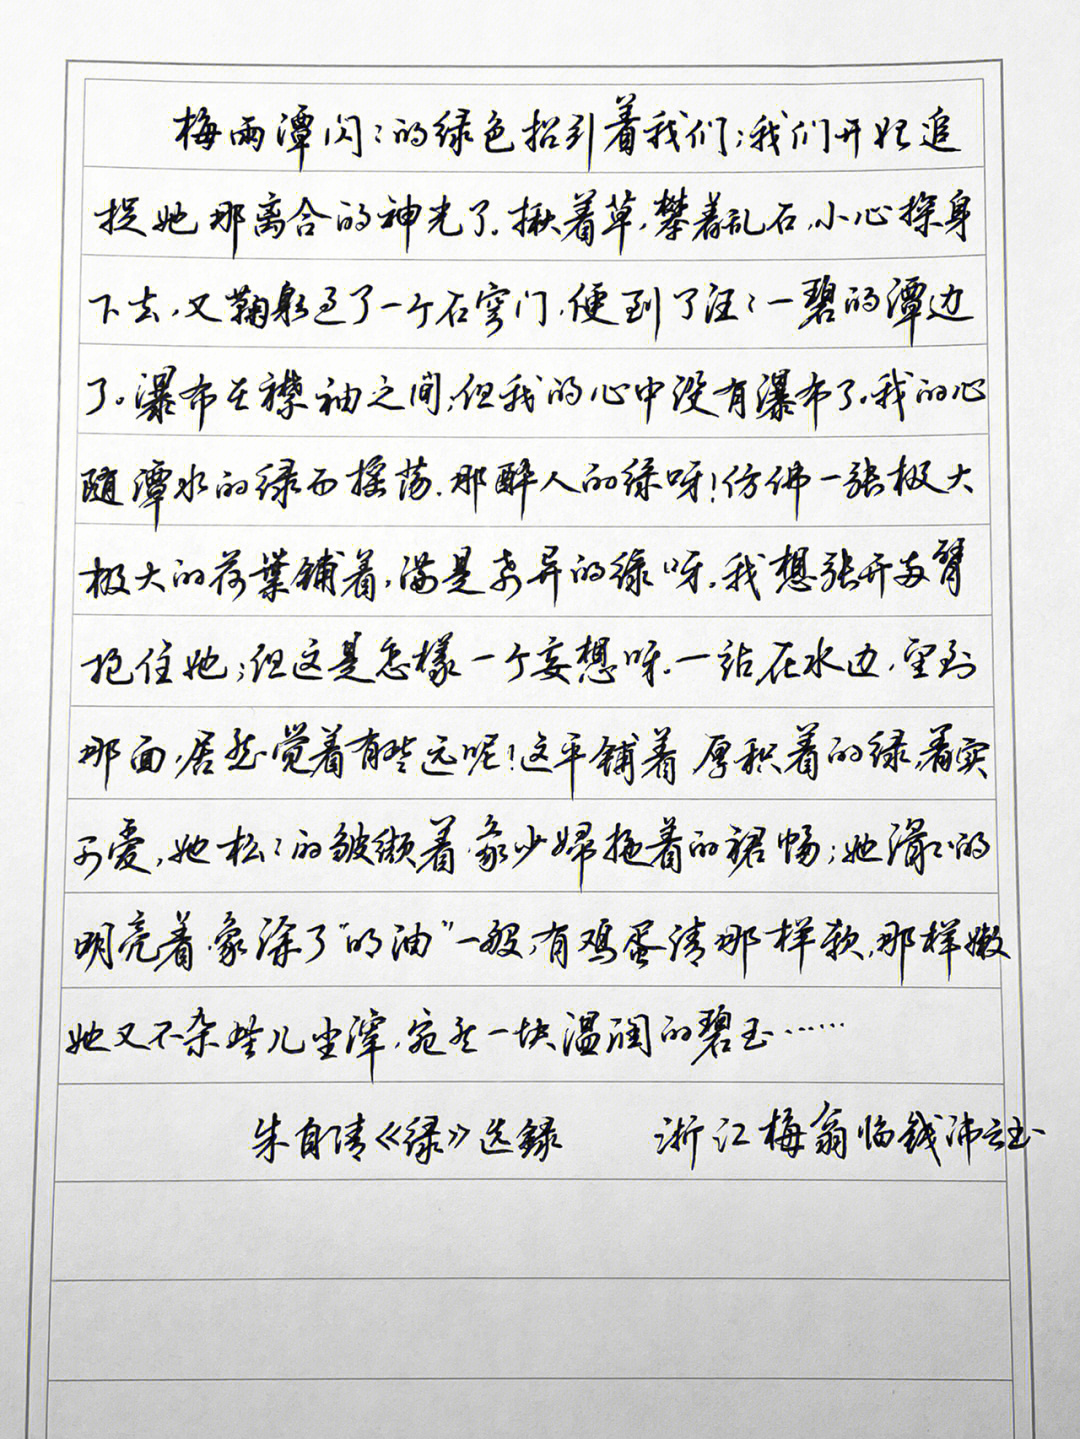 梅雨潭闪〻的绿色招引着我们；我们开始追
捉她那离合的神光了。揪着草，攀着乱石，小心探身
下去，又鞠躬过了一个石穹门，便到了汪〻一碧的潭边
了。瀑布在襟袖之间，但我的心中没有瀑布了。我的心
随潭水的绿而摇荡。那醉人的绿呀！仿佛一张极大
极大的荷葉铺着，满是奇异的绿呀。我想张开两臂
抱住她；但这是怎樣一个妄想呀。一站在水边，望到
那面，居然觉着有些远呢！这平铺着、厚积着的绿，着实
可爱，她松〻的皱缬着，象少婦拖着的裙幅；她滑〻的
明亮着，象涂了“明油”一般，有鸡蛋清那样软，那样嫩
她又不杂些儿尘滓，宛然一块温润的碧玉……
朱自清《绿》选録 浙江梅翁临钱沛云玉